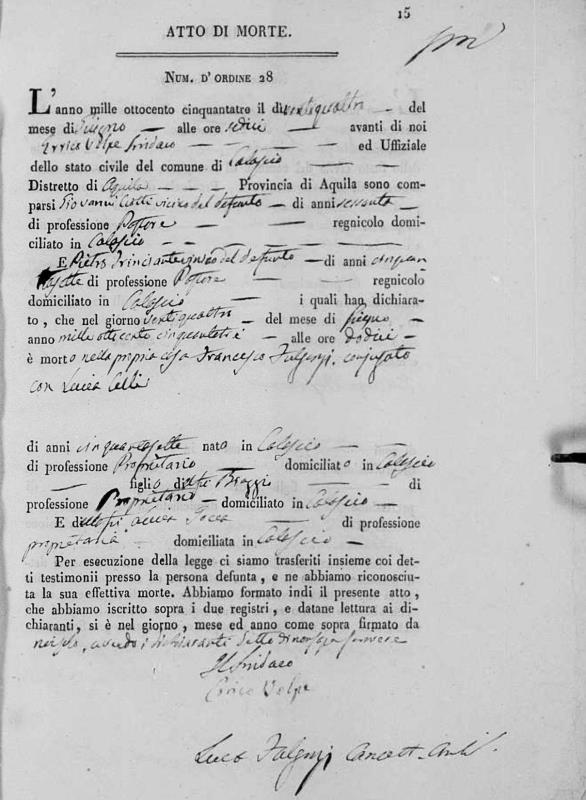 15
ATTO DI MORTE.
NUM. D'ORDINE 28
L'anno mille ottocento cinquantatre il dì ventiquattro del
mese di Giugno alle ore sedici avanti di noi
Errico Volpe Sindaco ed Uffiziale
dello stato civile del comune di Calascio
Distretto di Aquila Provincia di Aquila sono com-
parsi Giovanni vicino del defunto di anni sessanta
di professione Pastore regnicolo domi-
ciliato in Calascio
E Pietro vicino del defunto di anni cinquan
tasette di professione Pastore regnicolo
domiciliato in Calascio i quali han dichiara-
to, che nel giorno ventiquattro del mese di Giugno
anno mille ottocento cinquantatre alle ore dodici
è morto nella propria casa Francesco Fulgenzi conjugato
con Lucia Celli
di anni cinquantasette nato in Calascio
di professione Proprietario domiciliato in Calascio
figlio di Biaggio di
professione Proprietario domiciliato in Calascio
E di di professione
proprietaria domiciliata in Calascio
Per esecuzione della legge ci siamo trasferiti insieme coi det-
ti testimonii presso la persona defunta, e ne abbiamo riconosciu-
ta la sua effettiva morte. Abbiamo formato indi il presente atto,
che abbiamo iscritto sopra i due registri, e datane lettura ai di-
chiaranti, si è nel giorno, mese ed anno come sopra firmato da
noi solo, avendo i dichiaranti detto di non saper scrivere
Il Sindaco
Errico Volpe
Luca Fulgenzi